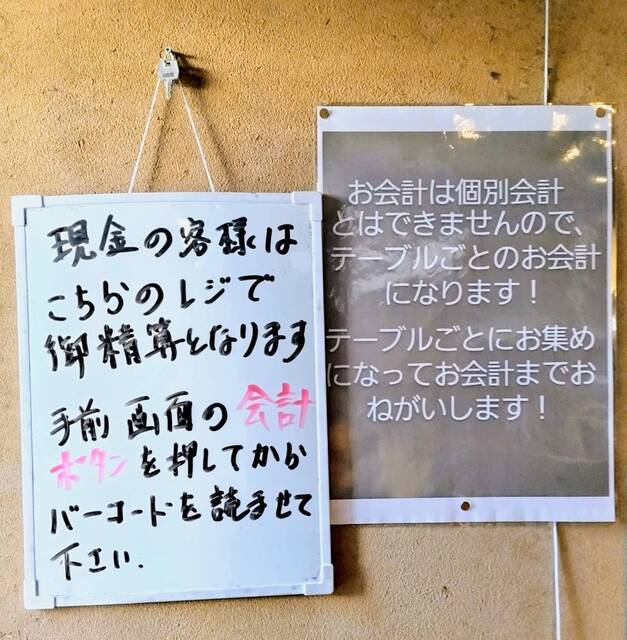 現金の客様は
こちらのレジで
御精算となります
手前画面の会計
ボタンを押してから
バーコードを読ませて
下さい.
お会計は個別会計
とはできませんので、
テーブルごとのお会計
になります！
テーブルごとにお集め
になってお会計までお
ねがいします！